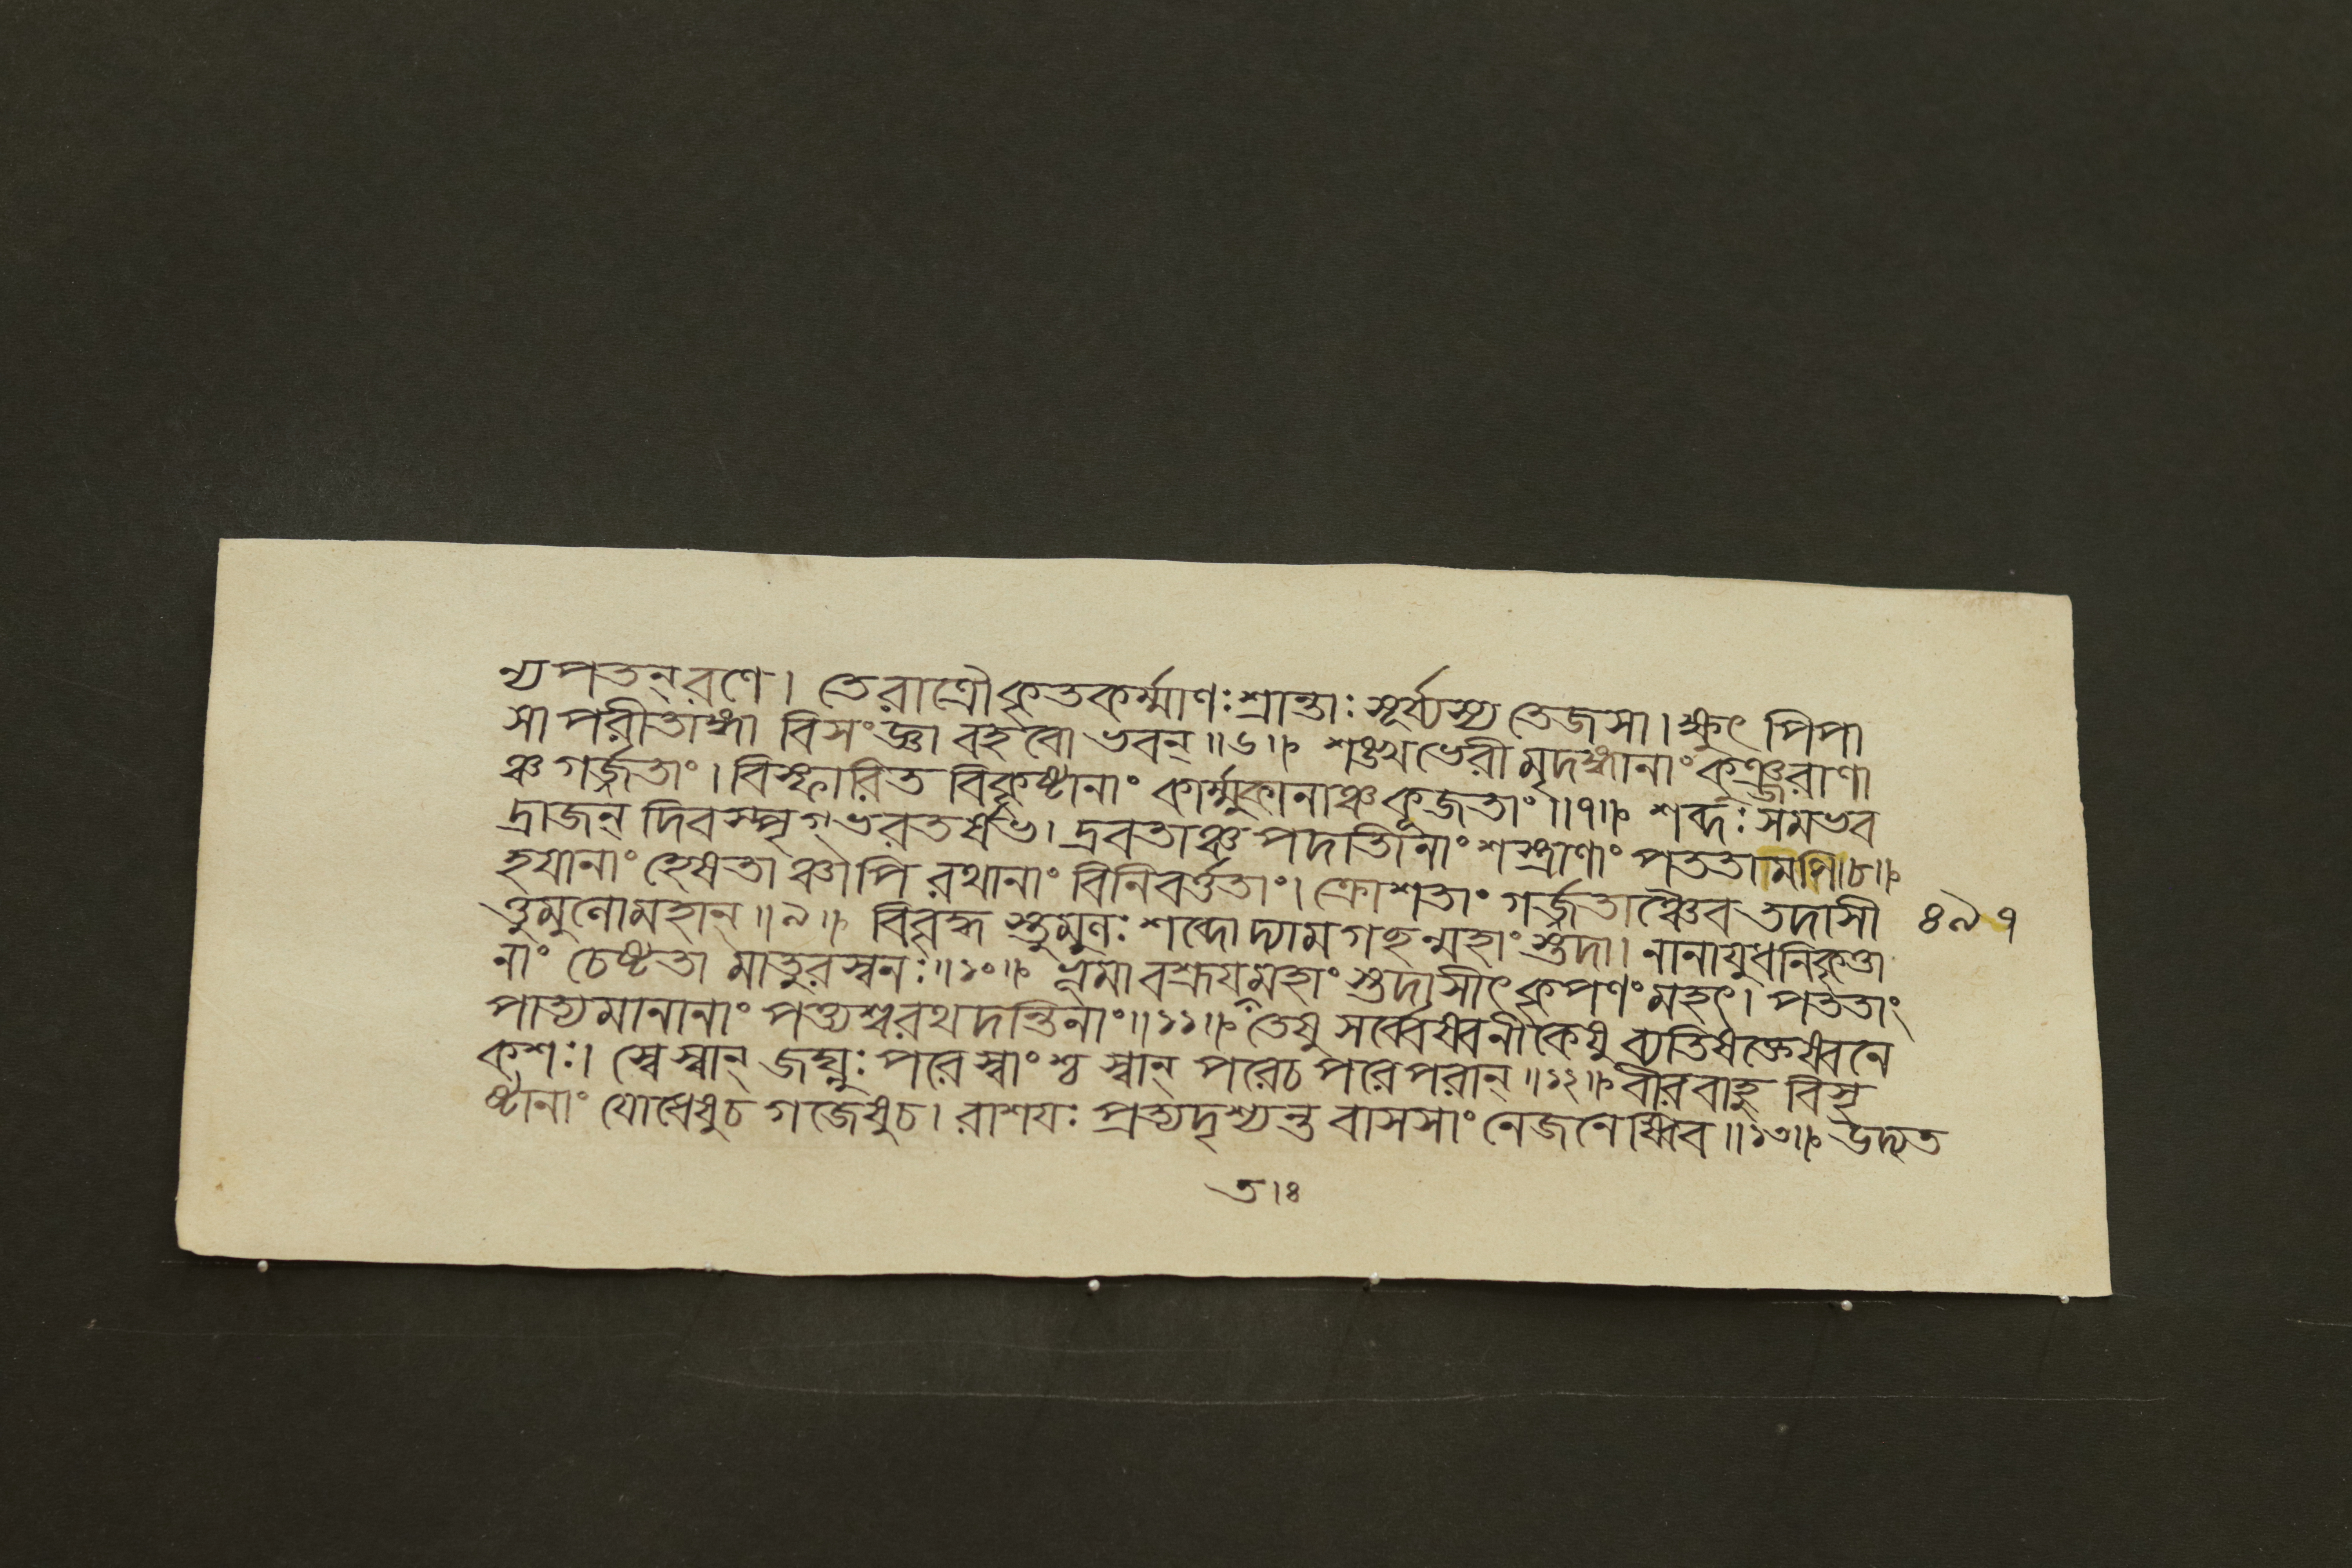 ন্যপতন্‌রণে। তেরাত্রৌকৃতকর্ম্মাণঃশ্রান্তাঃসূর্য্যস্য তেজসা। ক্ষুৎ পিপা
সা পরীতাঙ্গা বিসংজ্ঞা বহবো ভবন্॥৬॥ শঙ্খভেরী মৃদঙ্গানাং কুঞ্জরাণা
ঞ্চ গর্জ্জতাং। বিস্ফারিত বিকৃষ্টানাং কার্ম্মুকানাঞ্চকূজতাং॥৭॥ শব্দঃ সমভব
দ্রাজন্ দিবস্পৃগ্‌ভরতর্ষভ। দ্রবতাঞ্চ পদাতীনাং শস্ত্রাণাং পততামপি॥৮॥
হযানাং হ্রেষতা ঞ্চাপি রথানাং বিনিবর্ত্ততাং। ক্রোশতাং গর্জ্জতাঞ্চৈব তদাসী
৪৯৭
ত্তুমুলোমহান্॥৯॥ বিবৃদ্ধ স্তুমুলঃ শব্দোদ্যামগচ্ছন্মহাং স্তদা। নানাযুধনিকৃত্তা
নাং চেষ্টতা মাতুরস্বনঃ॥১০॥ ভূমাবশ্রূযন্মহাং স্তদাসীৎকৃপণং মহৎ। পততাং
পাত্যমানানাং পত্ত্যশ্বরথদন্তিনাং॥১১॥ তেষু সর্ব্বেষ্বনীকেষু ব্যতিষক্তেষ্বনে
কশঃ। স্বেস্বান্ জঘ্নুঃ পরেস্বাংশ্চ স্বান্ পরেচ পরেপরান্॥১২॥ বীরবাহু বিসৃ
ষ্টানাং যোধেষুচ গজেষুচ। রাশযঃ প্রত্যদৃশ্যন্ত বাসসাং নেজনেষ্বিব॥১৩॥ উদ্যত
তাঃ